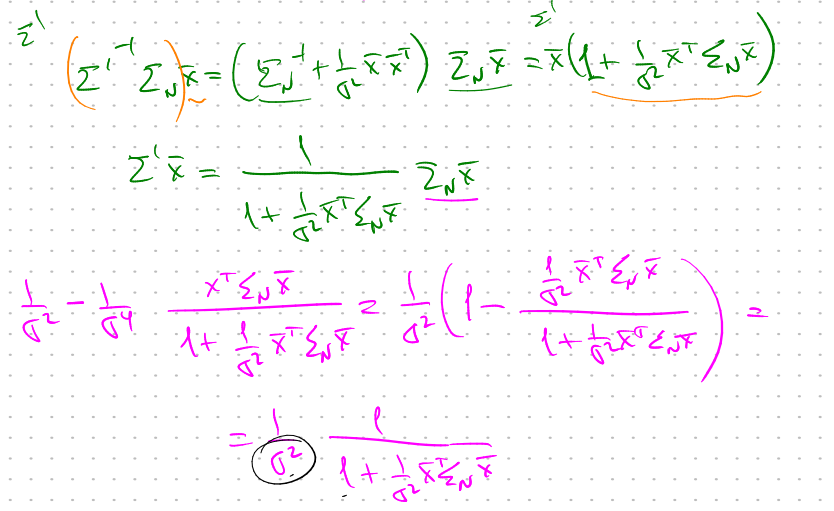 Σ' Σ'
(Σ'⁻¹ Σ_N) x̄ = (Σ_N⁻¹ + 1/σ² x̄ x̄ᵀ) Σ_N x̄ = x̄ (1 + 1/σ² x̄ᵀ Σ_N x̄)
Σ' x̄ = 1/(1 + 1/σ² x̄ᵀ Σ_N x̄) Σ_N x̄
1/σ² - 1/σ⁴ (xᵀ Σ_N x̄)/(1 + 1/σ² x̄ᵀ Σ_N x̄) = 1/σ² (1 - (1/σ² x̄ᵀ Σ_N x̄)/(1 + 1/σ² x̄ᵀ Σ_N x̄)) =
= 1/σ² 1/(1 + 1/σ² x̄ᵀ Σ_N x̄)